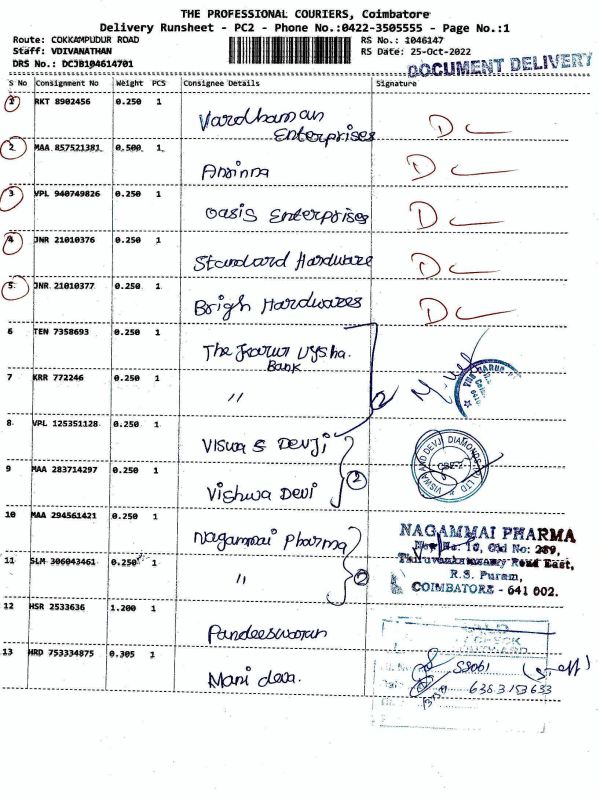 THE PROFESSIONAL COURIERS, Coimbatore
Delivery Runsheet - PC2 - Phone No.:0422-3505555 - Page No.:1
Route: COKKAMPUDUR ROAD RS No.: 1046147
Staff: VDIVANATHAN RS Date: 25-Oct-2022
DRS No.: DCJB104614701 DOCUMENT DELIVERY
S No Consignment No Weight PCS Consignee Details Signature
1 RKT 8902456 0.250 1 Vardhaman
Enterprises DC
2 MAA 857521381 0.500 1 DC
3 VPL 940749826 0.250 1 Oasis Enterprises DC
4 JNR 21010376 0.250 1 Standard Hardware DC
5 JNR 21010377 0.250 1 Brigh Hardwares DC
6 TEN 7358693 0.250 1 The Karur Vysha.
Bank
7 KRR 772246 0.250 1 〃 2
8 VPL 125351128 0.250 1 Viswa S Devji
VISWA AND DEVJI DIAMONDS (P) LTD
CBE-2
9 MAA 283714297 0.250 1 Vishwa Devi 2
10 MAA 294561421 0.250 1 Nagammai Pharma
NAGAMMAI PHARMA
New No: 10, Old No: 289,
11 SLM 306043461 0.250 1 〃 2
Thiruvenkatasamy Road East,
R.S. Puram,
COIMBATORE - 641 002.
12 HSR 2533636 1.200 1 Pandeeswaran
13 HRD 753334875 0.305 1 Mani deva.
SS061 (Staff)
6363153633